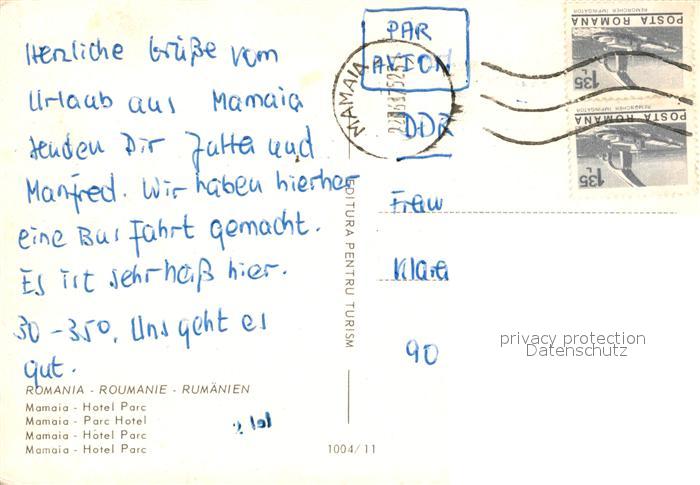 Herzliche Grüße vom
Urlaub aus Mamaia
senden Dir Jutta und
Manfred. Wir haben hierher
eine Bus Fahrt gemacht.
Es ist sehr haiß hier.
30-35°. Uns geht es
gut.
ROMANIA - ROUMANIE - RUMÄNIEN
Mamaia - Hotel Parc
Mamaia - Parc Hotel
Mamaia - Hotel Parc
Mamaia - Hotel Parc
EDITURA PENTRU TURISM
1004/11
PAR
AVION
DDR
MAMAIA
POSTA ROMANA
REMORCHER IMPINGATOR
1,35 L
POSTA ROMANA
REMORCHER IMPINGATOR
1,35 L
Frau
Klara
90
privacy protection
Datenschutz